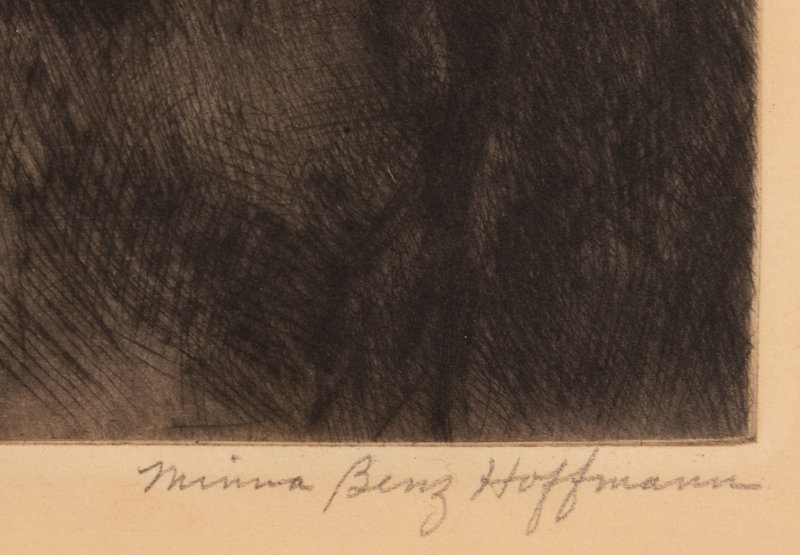 Minna Benz Hoffmann